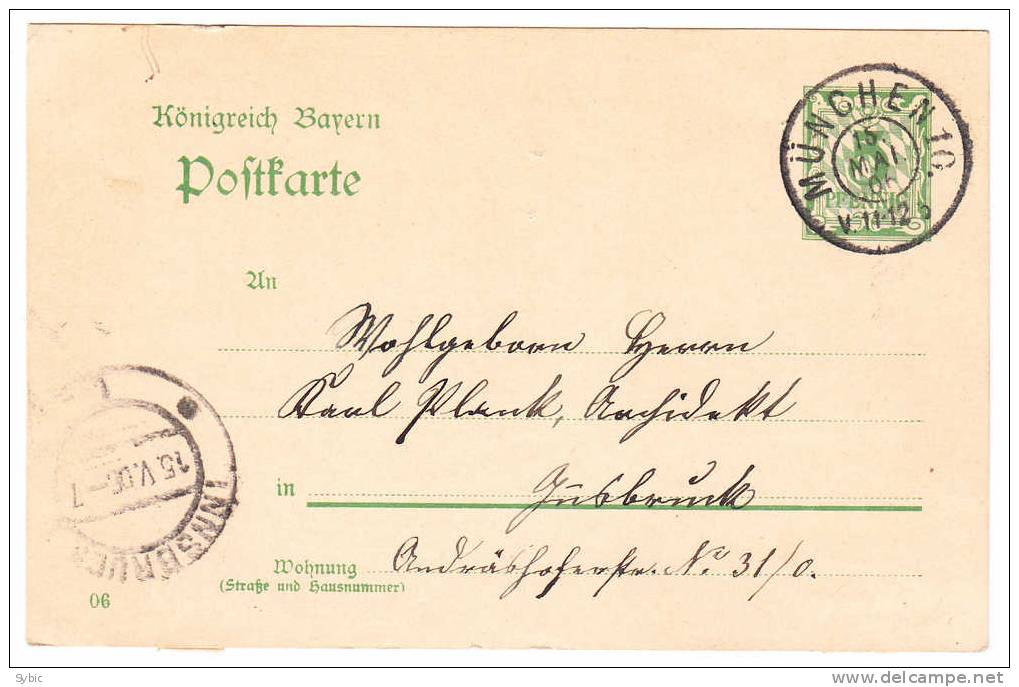 Königreich Bayern
Postkarte
MÜNCHEN 10.
15.
MAI
06
V.11-12
PFENNIG
An
Wohlgeborn Herrn
Karl Plank, Archidekt
in Insbruck
Wohnung Andräshoferstr. No 31/0.
(Straße und Hausnummer)
15.V.06-7
INNSBRUCK
06
Sybic
www.delcampe.net